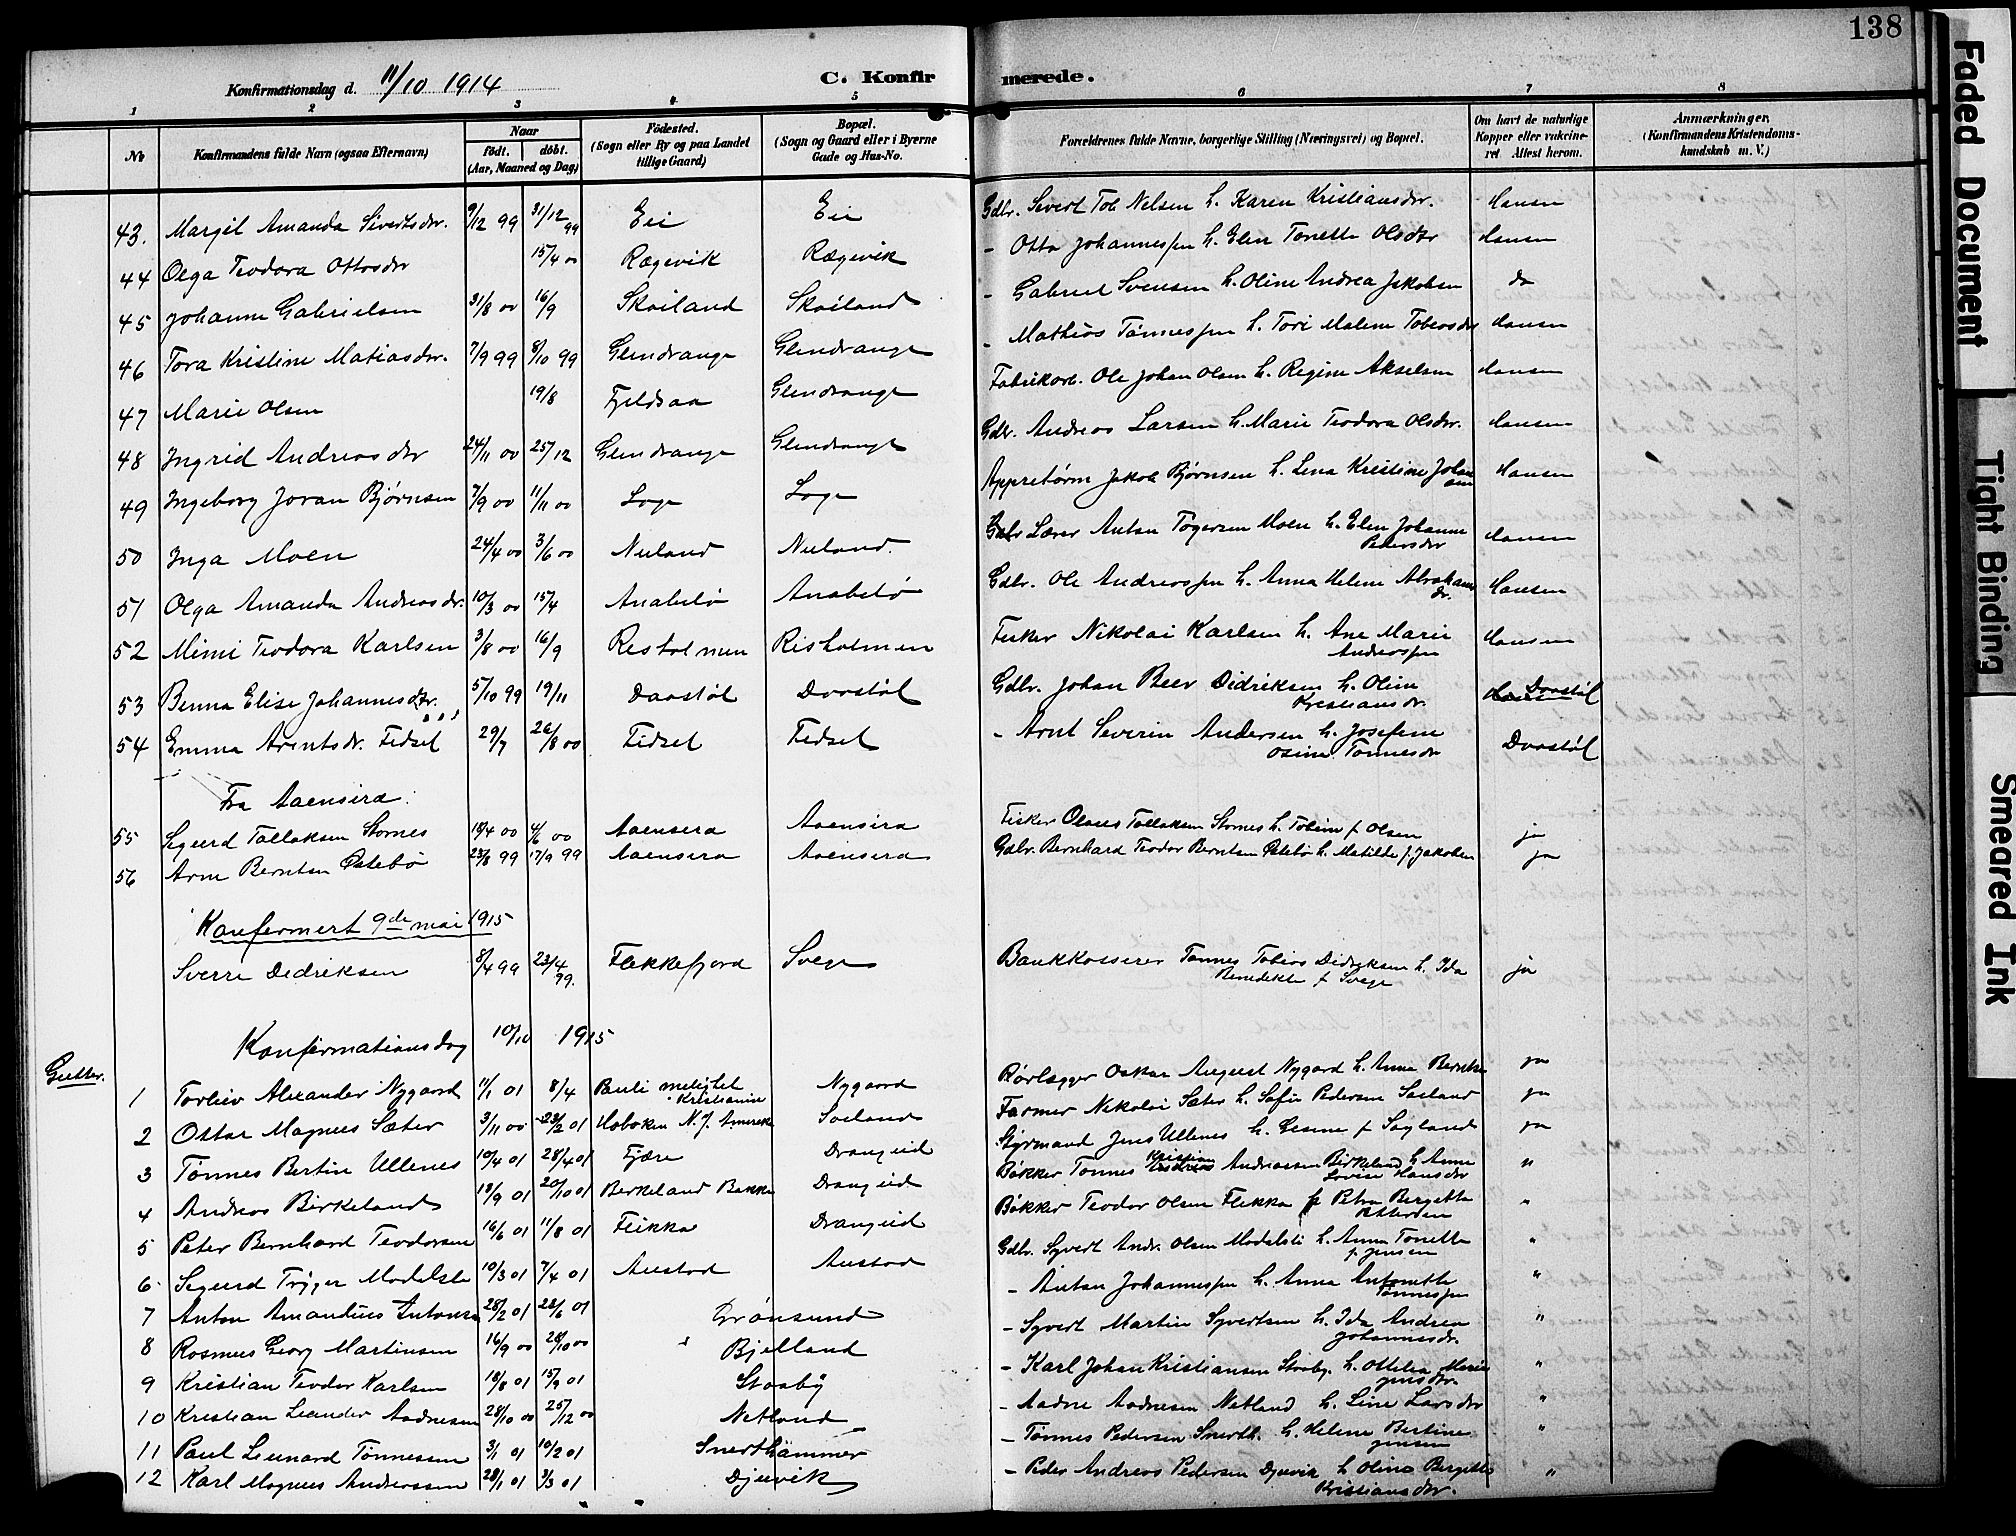 138
Konfirmationsdag d. 11/10 1914
C. Konfirmerede.
1 2 3 4 5 6 7 8
No
Konfirmandens fulde Navn (ogsaa Efternavn)
Naar
födt. döbt.
(Aar, Maaned og Dag)
Födested.
(Sogn eller By og paa Landet
tillige Gaard)
Bopæl.
(Sogn og Gaard eller i Byerne
Gade og Hus-No.
Forældrenes fulde Navne, borgerlige Stilling (Næringsvei) og Bopæl.
Om havt de naturlige
Kopper eller vakcine-
ret Attest herom.
Anmærkninger,
(Konfirmandens Kristendoms-
kundskab m. V.)
43. Margit Amanda Sivertsdr. 9/12 99 31/12 99 Eie Eie Gdbr. Sivert Tob Nelsen h. Karen Kristiansdr. Hansen
44 Olga Teodora Ottosdr 15/4 00 Rægevik Rægevik - Otto Johannessen h. Elen Tonette Olsdtr Hansen
45 Johanne Gabrielsen 31/8 00 16/9 Skailand Skailand - Gabriel Svensen h. Oline Andrea Jakobsen do
46 Tora Kristine Matiasdtr. 7/9 99 8/10 99 Glendrange Glendrange - Mathias Tønnessen h. Tori Malene Tobiasdr Hansen
47 Marie Olsen 19/8 Fjeldsaa Glendrange Fabrikarb. Ole Johan Olsen h. Regine Akselsen Hansen
48 Ingrid Andreasdtr 24/11 00 25/12 Glendrange Glendrange Gdbr. Andreas Larsen h. Marie Teodora Olsdtr. Hansen
49 Ingeborg Joran Bjørnsen 7/9 00 11/11 00 Loge Loge Appretørm Jakob Bjørnsen h. Lena Kristine Johansen Hansen
50 Inga Moen 24/4 00 3/6 00 Nuland Nuland. Gdbr Lærer Anton Tøgersen Moen h. Elen Johanne
Pedersdtr Hansen
51 Olga Amanda Andreasdr. 10/3 00 15/4 Anabelø Anabelø Gdbr. Ole Andreassen h. Anna Helene Abrahams
dr. Hansen
52 Mimi Teodora Karlsen 3/8 00 16/9 Resholmen Risholmen Fisker Nikolai Karlsen h. Ane Marie
Andreassen Hansen
53 Benna Elise Johannesdtr. 5/10 99 19/11 Daastøl Daastøl Gdbr. Johan Beer Didriksen h. Oline
Kristiansdr. Daastøl
54 Emma Arentsdr. Fidsel 29/7 26/8 00 Fidsel Fidsel - Arnt Severin Andersen h. Josefine
Osine Tønnesdr Daastøl
Fra Aaensira.
55 Sigurd Tollaksen Stornes 18/4 00 4/6 00 Aaensira Aaensira Fisker Olaus Tollaksen Stornes h. Tobine f Olsen ja
56 Arne Berntsen Østebø 23/8 99 17/9 99 Aaensira Aaensira Gdbr. Bernhard Teodor Berntsen Østebø h. Matilde f. Jakobsen ja
Konfermert 9de mai 1915
Sverre Dedriksen 8/4 99 23/4 99. Flekkefjord Svege Bankkasserer Tønnes Tobias Didriksen h. Ida
Benedikte f Svege ja
Konfirmationsdag 10/10 1915
Gutter.
1 Torleiv Alexander Nygaard 11/1 01 8/4 Pauli menighet
Kristiania Nygaard Rørlegger Oskar August Nygaard h. Anna Berntsen ja
2 Ottar Magnus Sæter 3/11 00 23/2 01 Hoboken N. J. Amerika Soeland Farmer Nikolai Sæter h. Sofie Pedersen Søeland ja
3 Tønnes Bertin Ullenes 10/4 01 28/4 01 Fjære Drangeid Styrmand Jens Ullenes h. Gesine f Søyland ja
4 Andreas Birkeland 19/9 01 20/10 01 Berkeland Bakke Drangeid Bøkker Tønnes Kristian Andreassen Birkeland h Anne
Lovise Hansdtr "
5 Peter Bernhard Teodorsen 16/6 01 11/8 01 Flikka Drangeid Bøkker Teodor Olsen Flikka h Petra Bergette
Pettersen "
6 Sigurd Trygve Modalsli 10/3 01 7/4 01 Austad Austad Gdbr. Syvert Andr. Olsen Modalsli h. Anna Tonette
f. Jensen "
7 Anton Amandus Antonsen 28/2 01 23/6 01 Grønsund - Anton Johannessen h. Anna Antonette
Tønnessen "
8 Rasmus Georg Martinsen 16/9 00 28/10 00 Bjelland - Syvert Martin Syvertsen h. Ida Andrea
Johannesdr. "
9 Kristian Teodor Karlsen 18/8 01 15/9 01 Stosby - Karl Johan Kristiansen Stosby h. Ottilea Marie
Jensdtr. "
10 Kristian Leander Aadnesen 28/10 00 25/12 00 Netland - Aadne Aadnesen Netland h. Line Larsdtr "
11 Paul Leonard Tønnessen 3/1 01 10/2 01 Snerthammer - Tønnes Pedersen Snerth. h. Helene Bertine
Jensen "
12 Karl Magnus Andreassen 28/1 01 3/3 01 Djuvik - Peder Andreas Pedersen Djuvik h Olina Bergitte
Kristiansdtr. "
Faded Document
Tight Binding
Smeared Ink